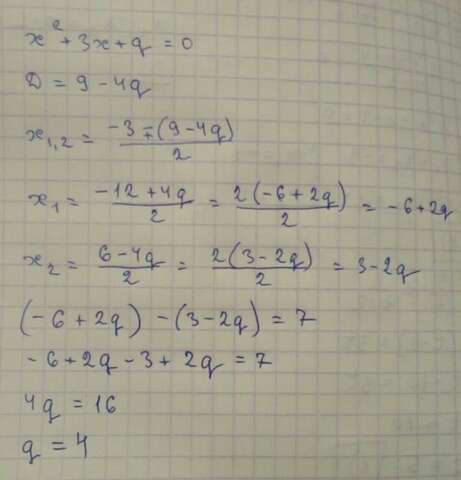 x² + 3x + q = 0
D = 9 - 4q
x₁,₂ = (-3 ∓ (9 - 4q)) / 2
x₁ = (-12 + 4q) / 2 = 2(-6 + 2q) / 2 = -6 + 2q
x₂ = (6 - 4q) / 2 = 2(3 - 2q) / 2 = 3 - 2q
(-6 + 2q) - (3 - 2q) = 7
-6 + 2q - 3 + 2q = 7
4q = 16
q = 4